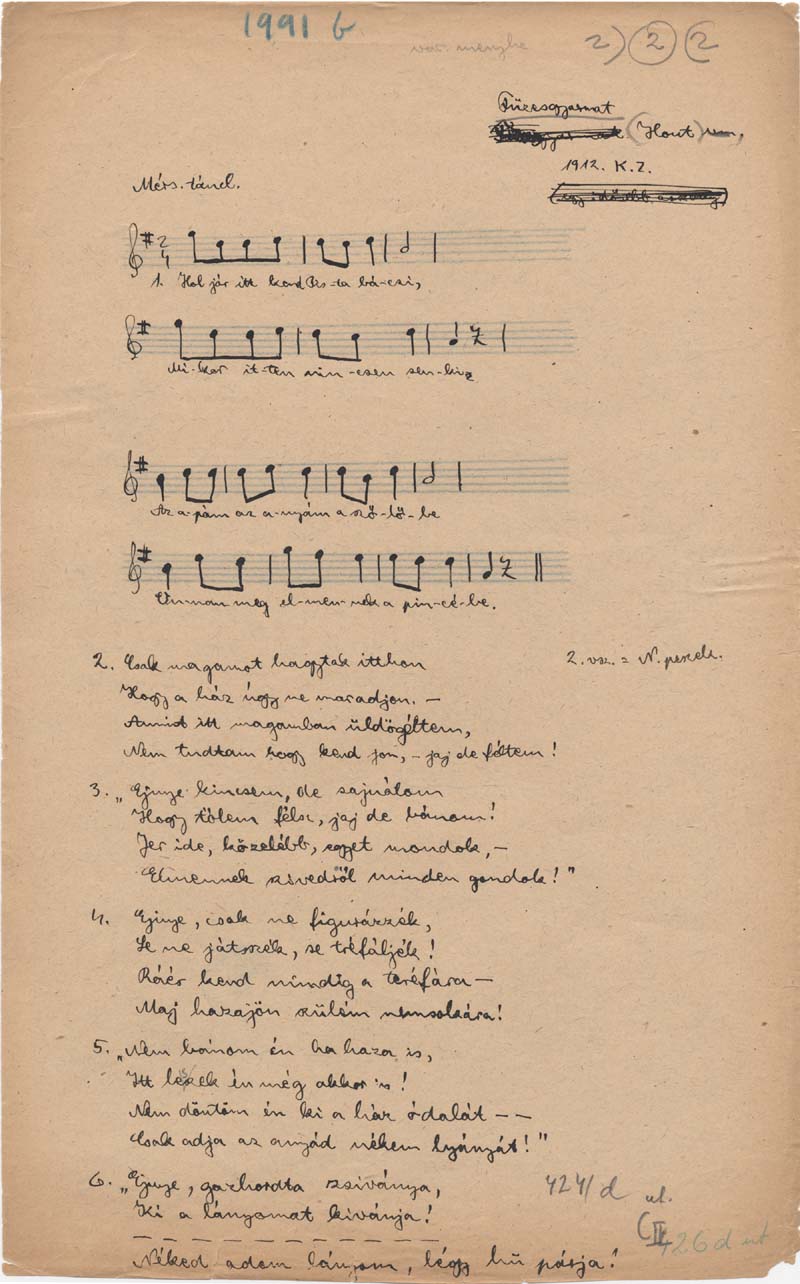 1991 b
var. menyhe
2) 2 (2
Füzesgyarmat
(Hont)
1912. K. Z.
(egy idősebb asszony)
Mérs. tánel.
2
4
1. Hol jár itt kend Pis-ta bá-csi,
Mi-kor it-ten nin-csen sen-ki,
Az a-pám az a-nyám a sző-lő-be
On-nan meg el-men-nek a pin-cé-be.
2. Csak magamot hagytak itthon
2. vsz. = N. peszek.
Hogy a ház úgy ne maradjon. —
Amint itt magamban üldögéltem,
Nem tudtam hogy kend jön, – jaj de féltem!
3. „Ejnye kincsem, de sajnálom
Hogy tőlem félsz, jaj de bánom!
Jer ide, közelébb, egyet mondok, –
Elmennek szivedről minden gondok!"
4. Ejnye, csak ne figurázzék,
Se ne játsszék, se tréfáljék!
Ráér kend mindig a teréfára —
Maj hazajön szülém nemsokára!
5. „Nem bánom én ha haza is,
Itt leszek én még akkor is!
Nem döntöm én ki a ház ódalát — —
Csak adja az anyád nékem lyányát!"
6. „Ejnye, gazhordta zsiványa,
Ki a lányomat kivánja!
— — — — — — — — —
Néked adom lányom, légy hű párja!
424/d ut.
C II
426 d ut